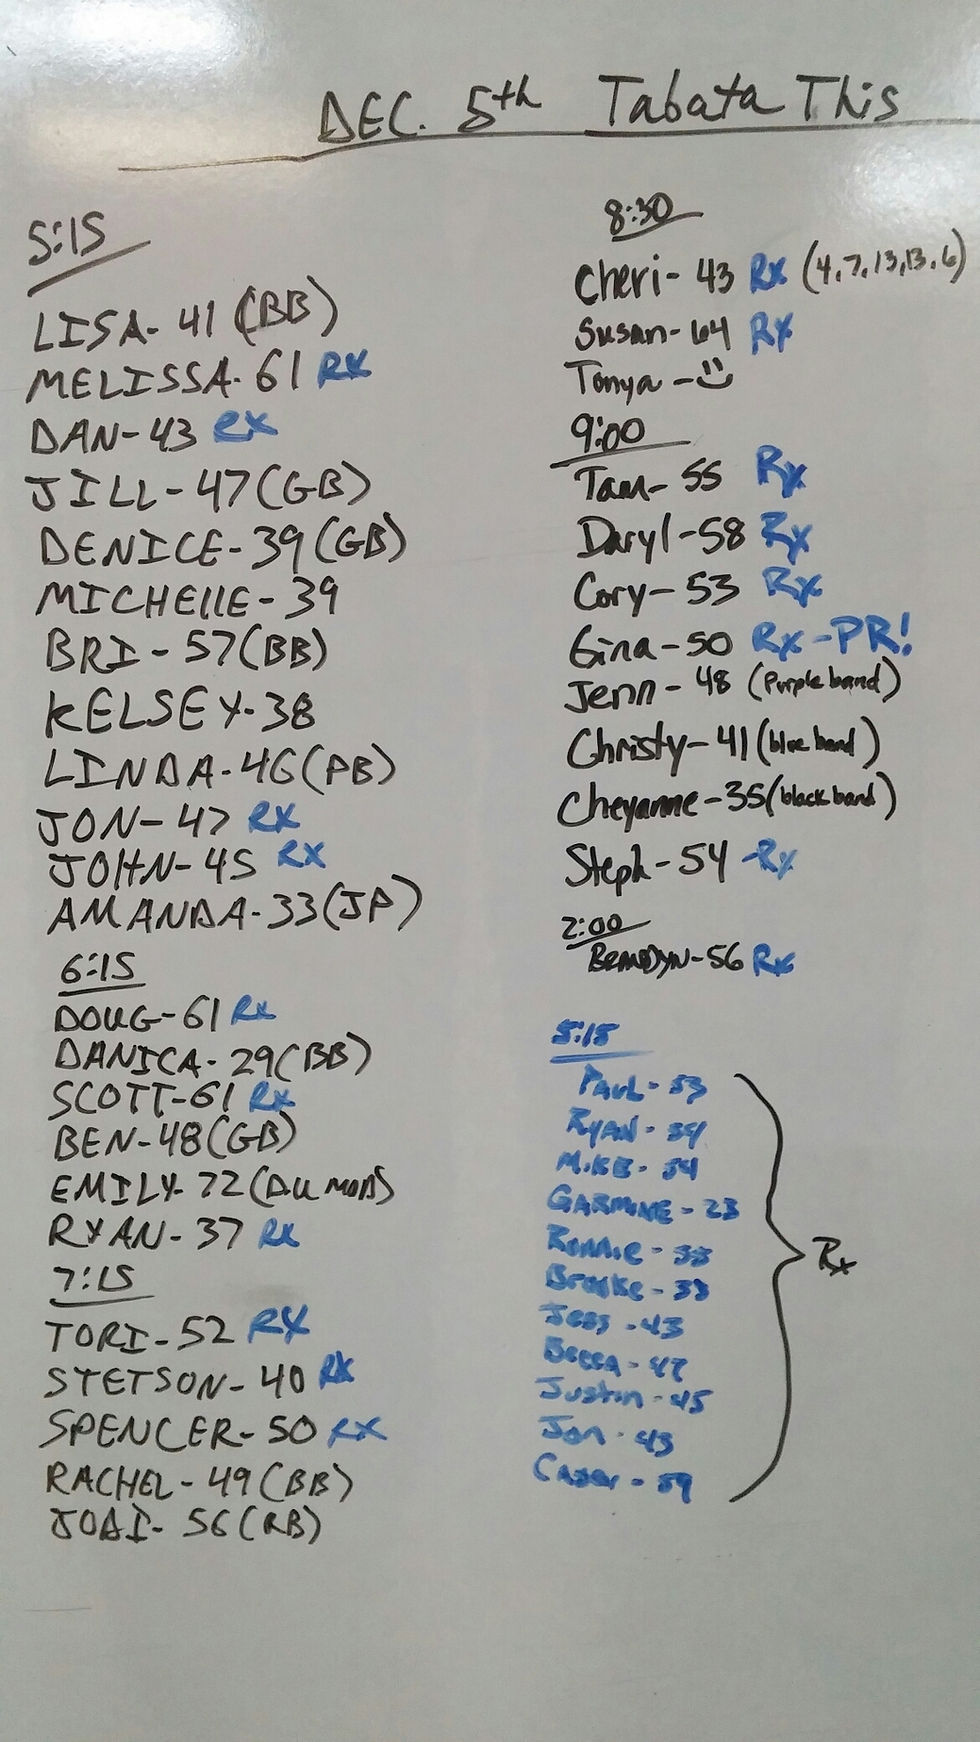 DEC. 5th Tabata This
5:15
LISA- 41 (BB)
MELISSA- 61 RX
DAN- 43 RX
JILL- 47 (GB)
DENICE- 39 (GB)
MICHEllE- 39
BRI- 57 (BB)
KELSEY- 38
LINDA- 46 (PB)
JON- 47 RX
JOHN- 45 RX
AMANDA- 33 (JP)
6:15
DOUG- 61 Rx
DANICA- 29 (BB)
SCOTT- 61 Rx
BEN- 48 (GB)
EMILY- 72
RYAN- 37 Rx
7:15
TORI- 52 RX
STETSON- 40 RX
SPENCER- 50 RX
RACHEL- 49 (BB)
JODI- 56 (RB)
8:30
Cheri- 43 Rx (4,7,13,13,6)
Susan- 64 Rx
Tonya -
9:00
Tam- 55 Rx
Daryl- 58 Rx
Cory- 53 Rx
Gina- 50 Rx -PR!
Jenn- 48 (Purple band)
Christy- 41 (blue band)
Cheyanne- 35 (black band)
Steph- 54 -Rx
2:00
BRANDYN- 56 Rx
5:15
PAUL- 53
RYAN-
MIKE-
- 23
-
Brooke -
Jess - 43
Becca - 47
Justin - 45
Jon - 43
Casey - 59
Rx